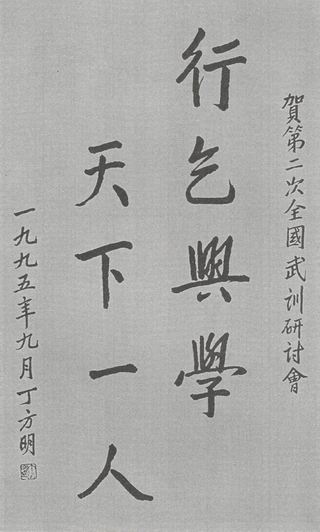 賀第二次全國武训研討會
行乞興學
天下一人
一九九五年九月丁方明